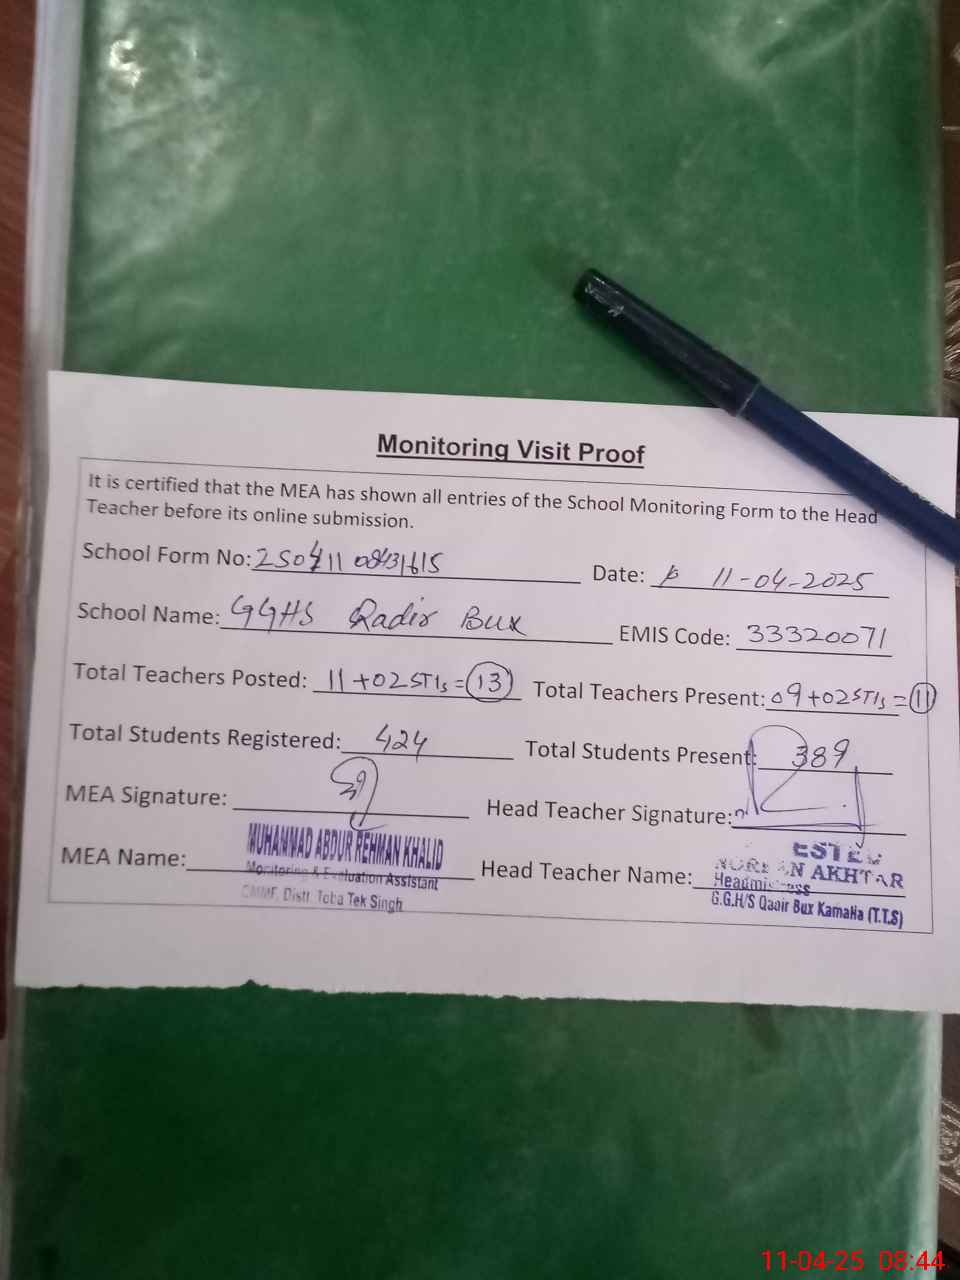 Monitoring Visit Proof
It is certified that the MEA has shown all entries of the School Monitoring Form to the Head
Teacher before its online submission.
School Form No: Date: 11-04-2025
School Name: GGHS Qadir Bux EMIS Code: 33320071
Total Teachers Posted: 11+02STIs=13 Total Teachers Present: 09+02STIs=11
Total Students Registered: 424 Total Students Present: 389
MEA Signature: Head Teacher Signature:
MEA Name: MUHAMMAD ABDUR REHMAN KHALID Head Teacher Name:
Monitoring & Evaluation Assistant AKHTAR
Distt. Toba Tek Singh Headmistress
G.G.H/S Qadir Bux Kamalia (T.T.S)
11-04-25 08:44